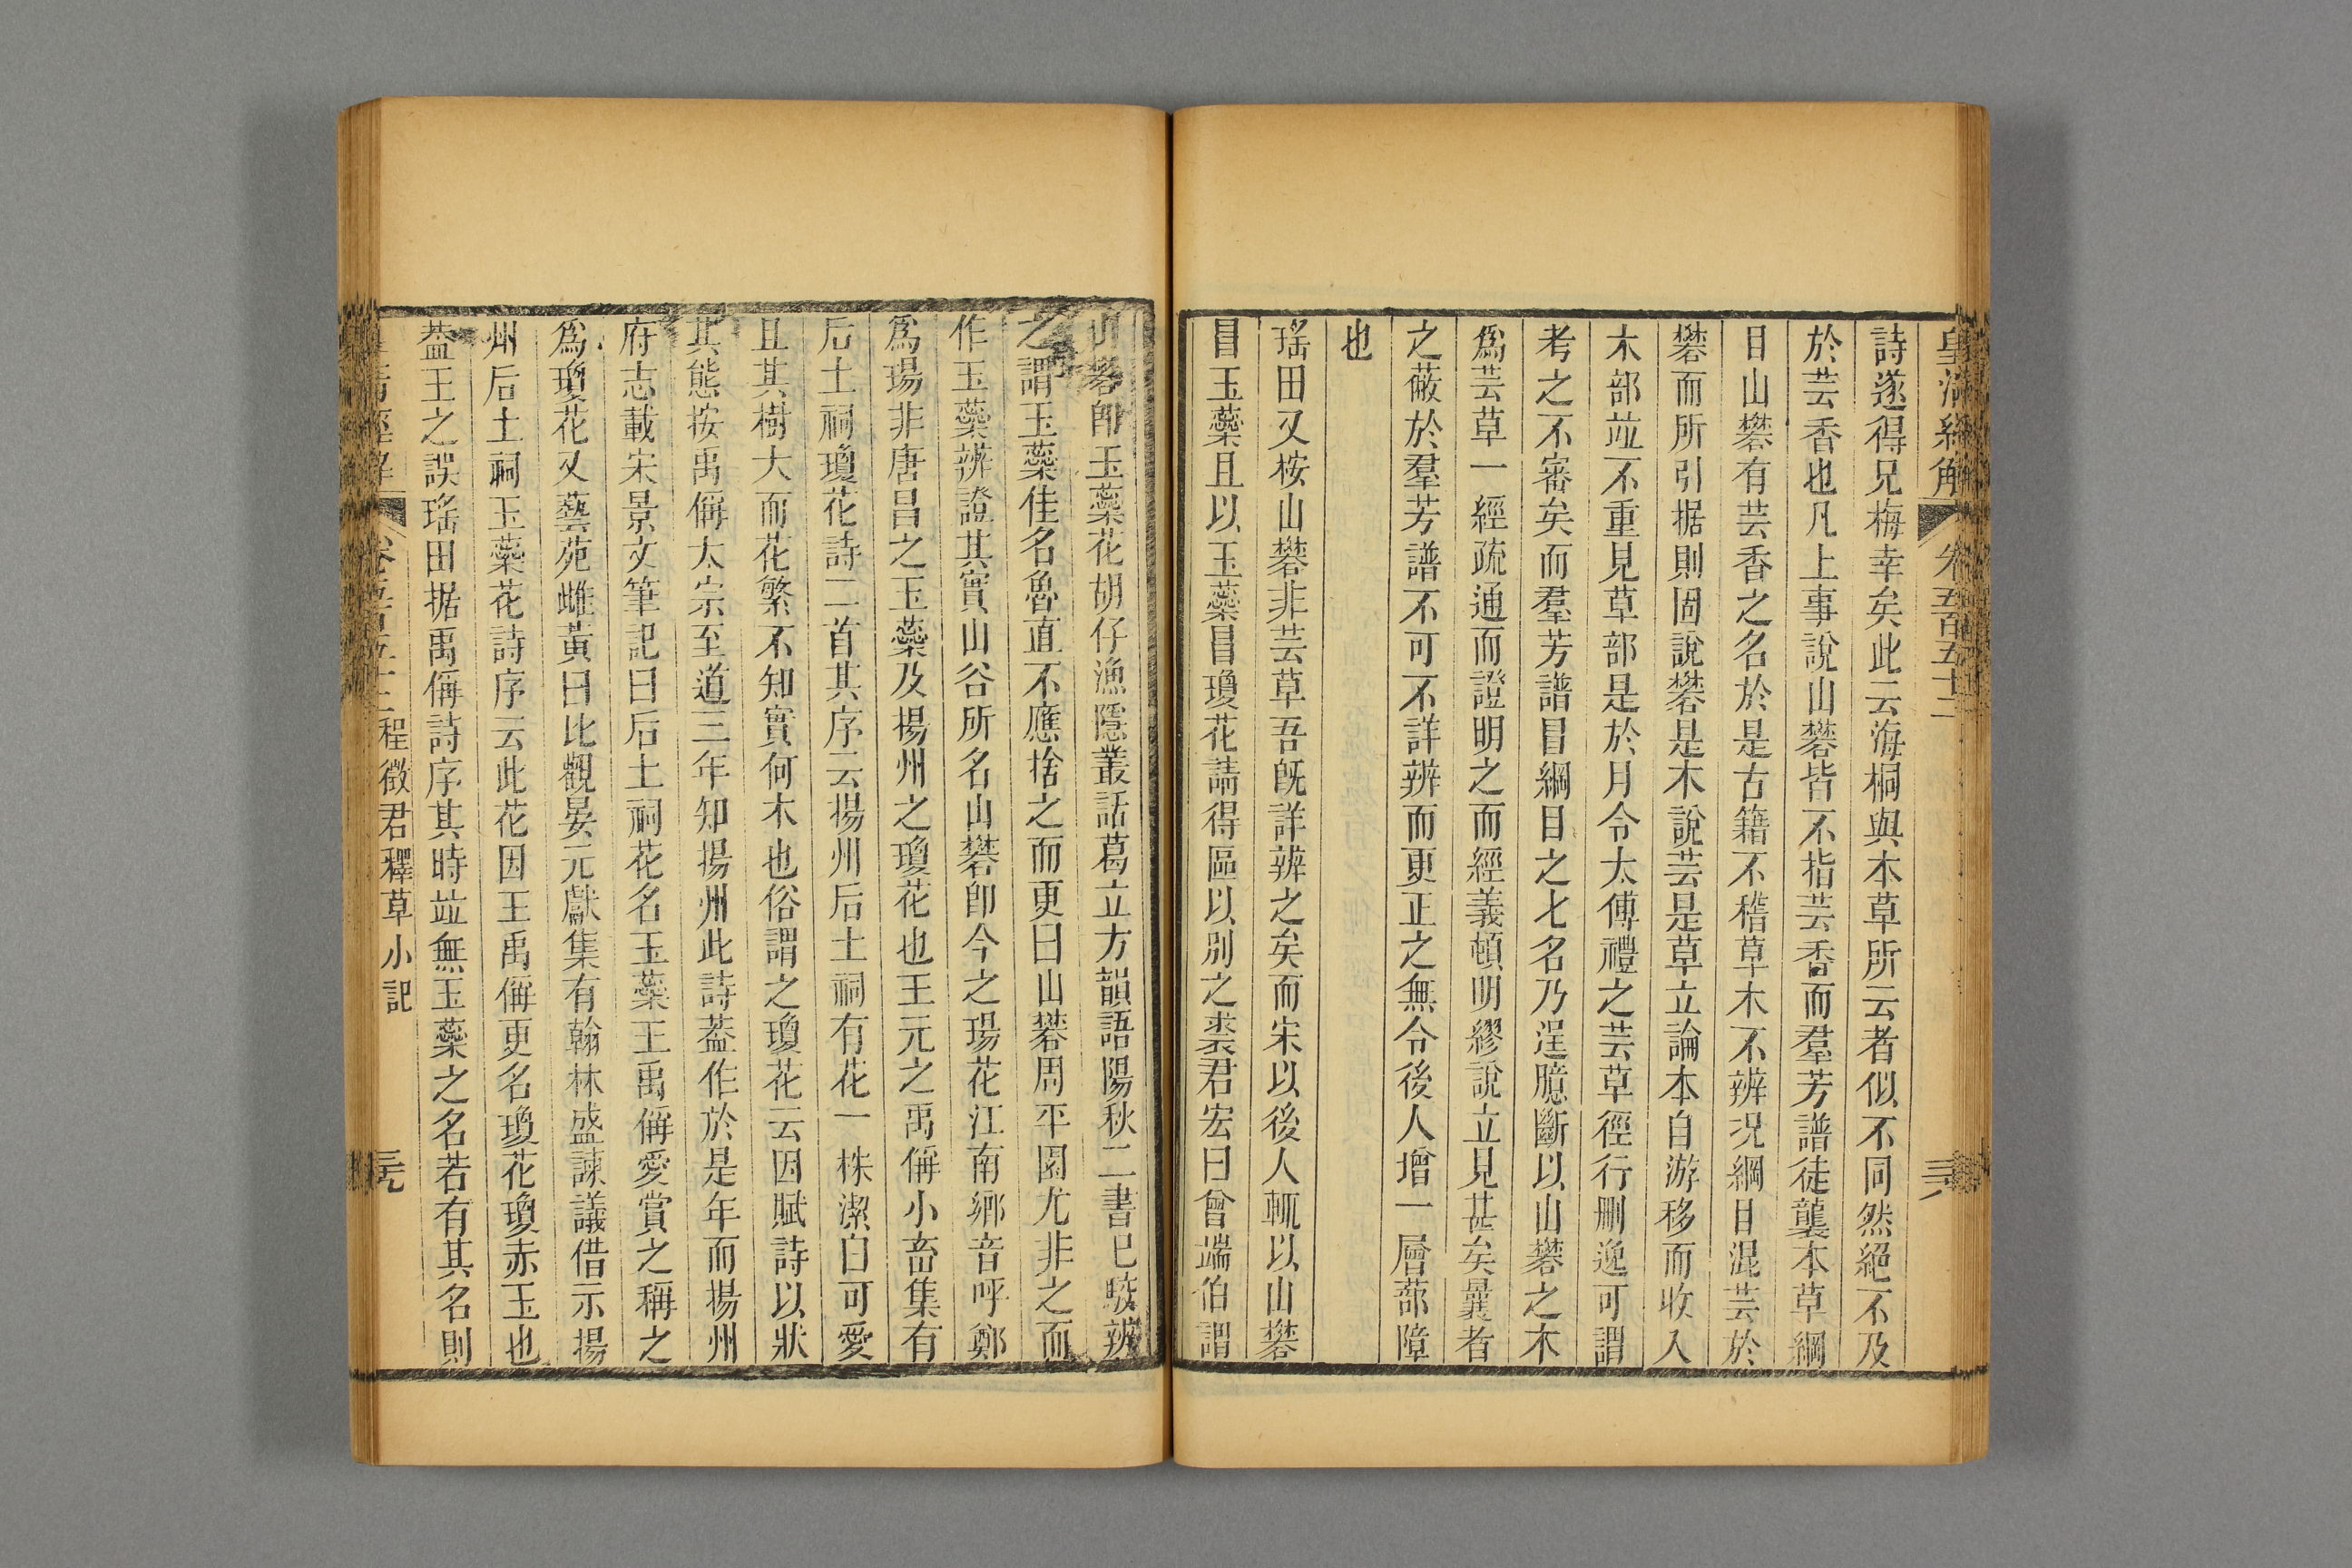 皇清經解 卷五百五十二 三六
詩遂得兄梅幸矣此云海桐與本草所云者似不同然絕不及
於芸香也凡上事說山礬皆不指芸香而羣芳譜徒襲本草綱
目山礬有芸香之名於是古籍不稽草木不辨況綱目混芸於
礬而所引据則固說礬是木說芸是草立論本自游移而收入
木部竝不重見草部是於月令太傅禮之芸草徑行刪逸可謂
考之不審矣而羣芳譜冒綱目之七名乃逞臆斷以山礬之木
爲芸草一經疏通而證明之而經義頓明繆說立見甚矣曩者
之蔽於羣芳譜不可不詳辨而更正之無令後人增一層蔀障
也
瑤田又桉山礬非芸草吾既詳辨之矣而宋以後人輒以山礬
冒玉蘂且以玉蘂冒瓊花請得區以別之裘君宏曰曾端伯謂
山礬卽玉蘂花胡仔漁隱叢話葛立方韻語陽秋二書已駮辨
之謂玉蘂佳名魯直不應捨之而更曰山礬周平園尤非之而
作玉蘂辨證其實山谷所名山礬卽今之瑒花江南鄉音呼鄭
爲瑒非唐昌之玉蘂及揚州之瓊花也王元之禹偁小畜集有
后土祠瓊花詩二首其序云揚州后土祠有花一株潔白可愛
且其樹大而花繁不知實何木也俗謂之瓊花云因賦詩以狀
其態按禹偁太宗至道三年知揚州此詩葢作於是年而揚州
府志載宋景文筆記曰后土祠花名玉蘂王禹偁愛賞之稱之
爲瓊花又藝苑雌黃曰比觀晏元獻集有翰林盛諫議借示揚
州后土祠玉蘂花詩序云此花因王禹偁更名瓊花瓊赤玉也
葢王之誤瑤田据禹偁詩序其時竝無玉蘂之名若有其名則
皇清經解 卷五百五十二 程徵君釋草小記 三九